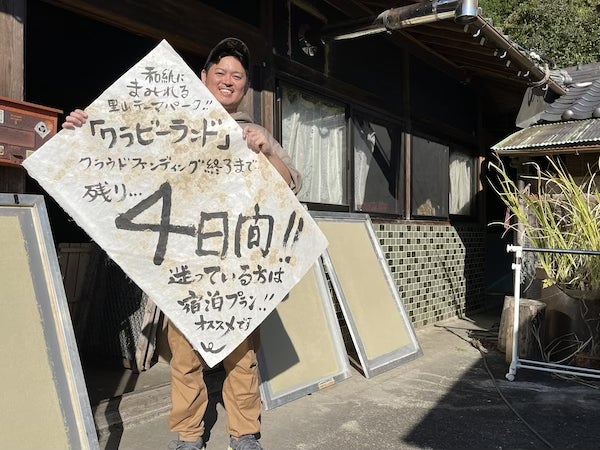 和紙に
まみれる
里山テーマパーク!!
「クラビーランド」
クラウドファンディング終了まで
残り…
4日間!!
迷っている方は
宿泊プラン!!
オススメです